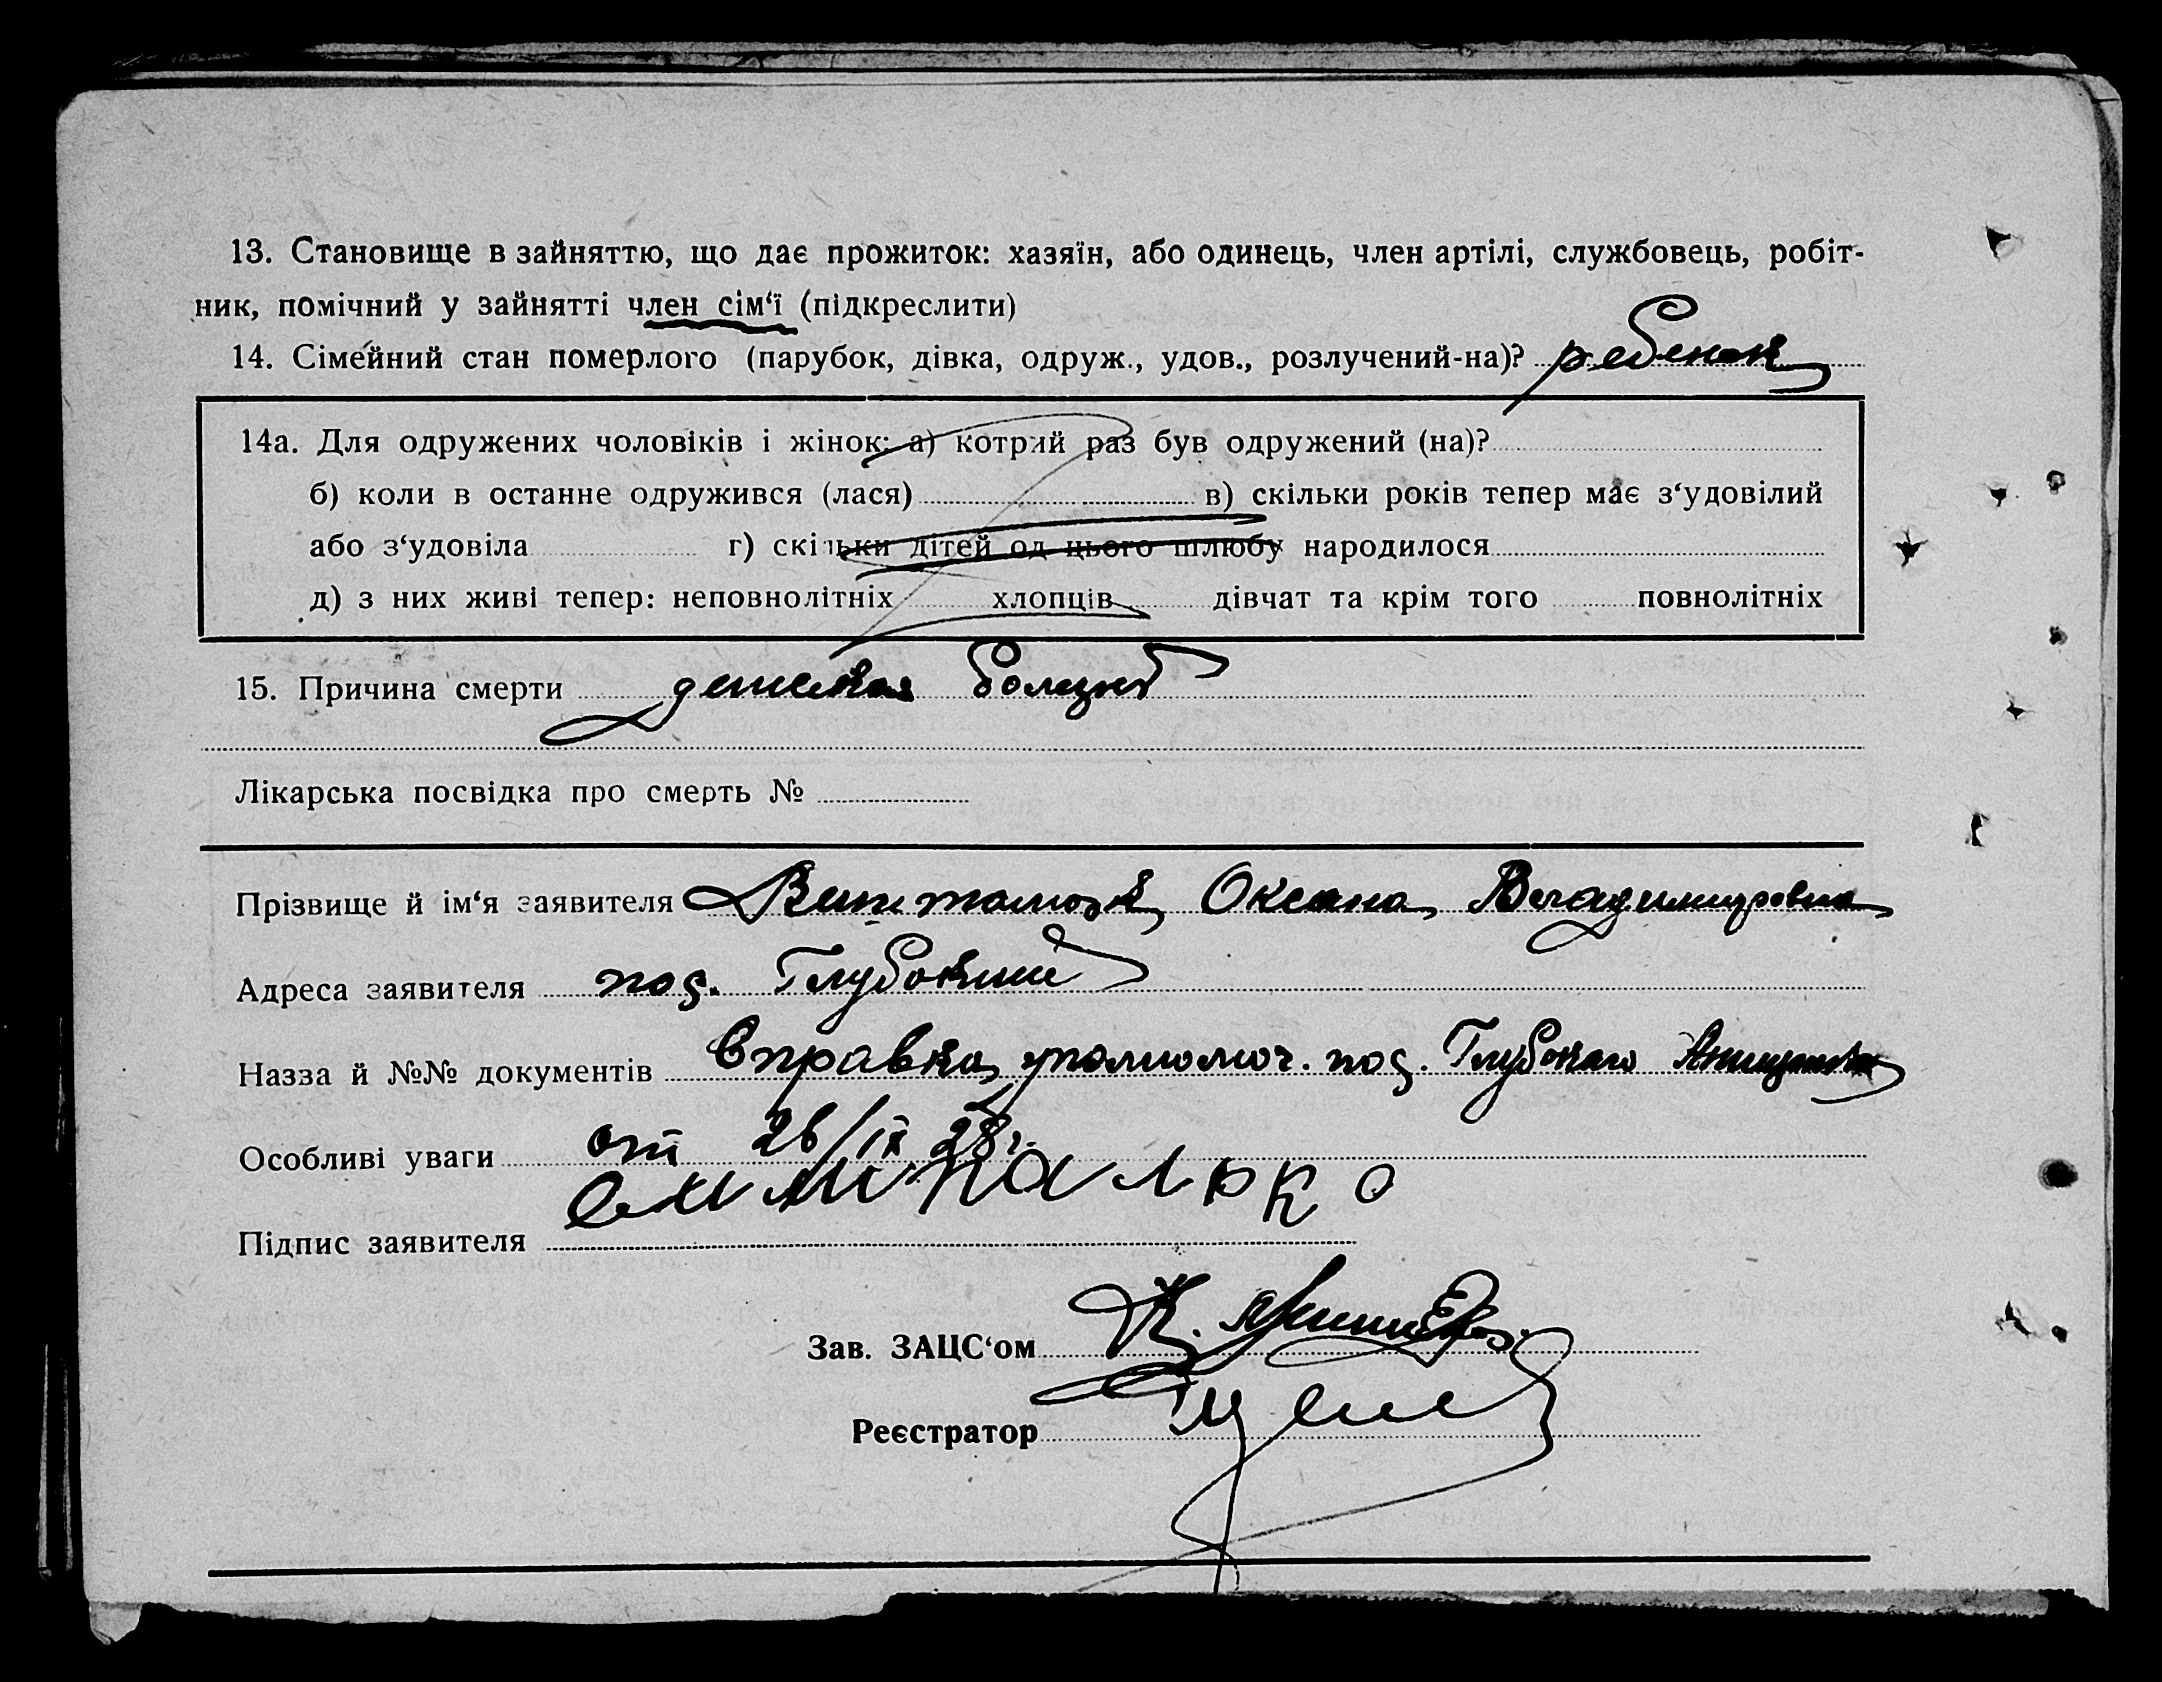 13. Становище в зайняттю, що дає прожиток: хазяїн, або одинець, член артілі, службовець, робіт-
ник, помічний у зайнятті член сім‘ї (підкреслити)
14. Сімейний стан померлого (парубок, дівка, одруж., удов., розлучений-на)? ребенок
14а. Для одружених чоловіків і жінок: а) котрий раз був одружений (на)?
б) коли в останнє одружився (лася) в) скільки років тепер має з‘удовілий
або з‘удовіла г) скільки дітей од цього шлюбу народилося
д) з них живі тепер: неповнолітніх хлопців дівчат та крім того повнолітніх
15. Причина смерти детская болезнь
Лікарська посвідка про смерть №
Прізвище й ім‘я заявителя Оксана Владимировна
Адреса заявителя пос. Глубокий
Назва й №№ документів Справка уполномоч. пос. Глубокаго
Особливі уваги от 26/IX 28 г.
Підпис заявителя
Зав. ЗАЦС‘ом
Реєстратор